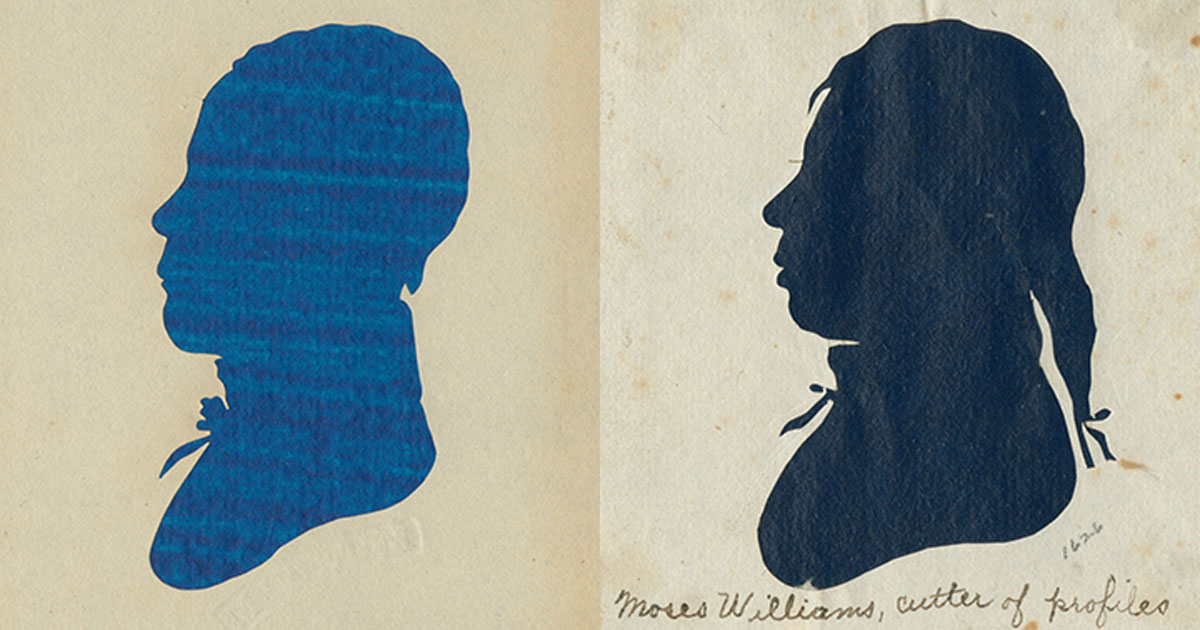 1626
Moses Williams, cutter of profiles